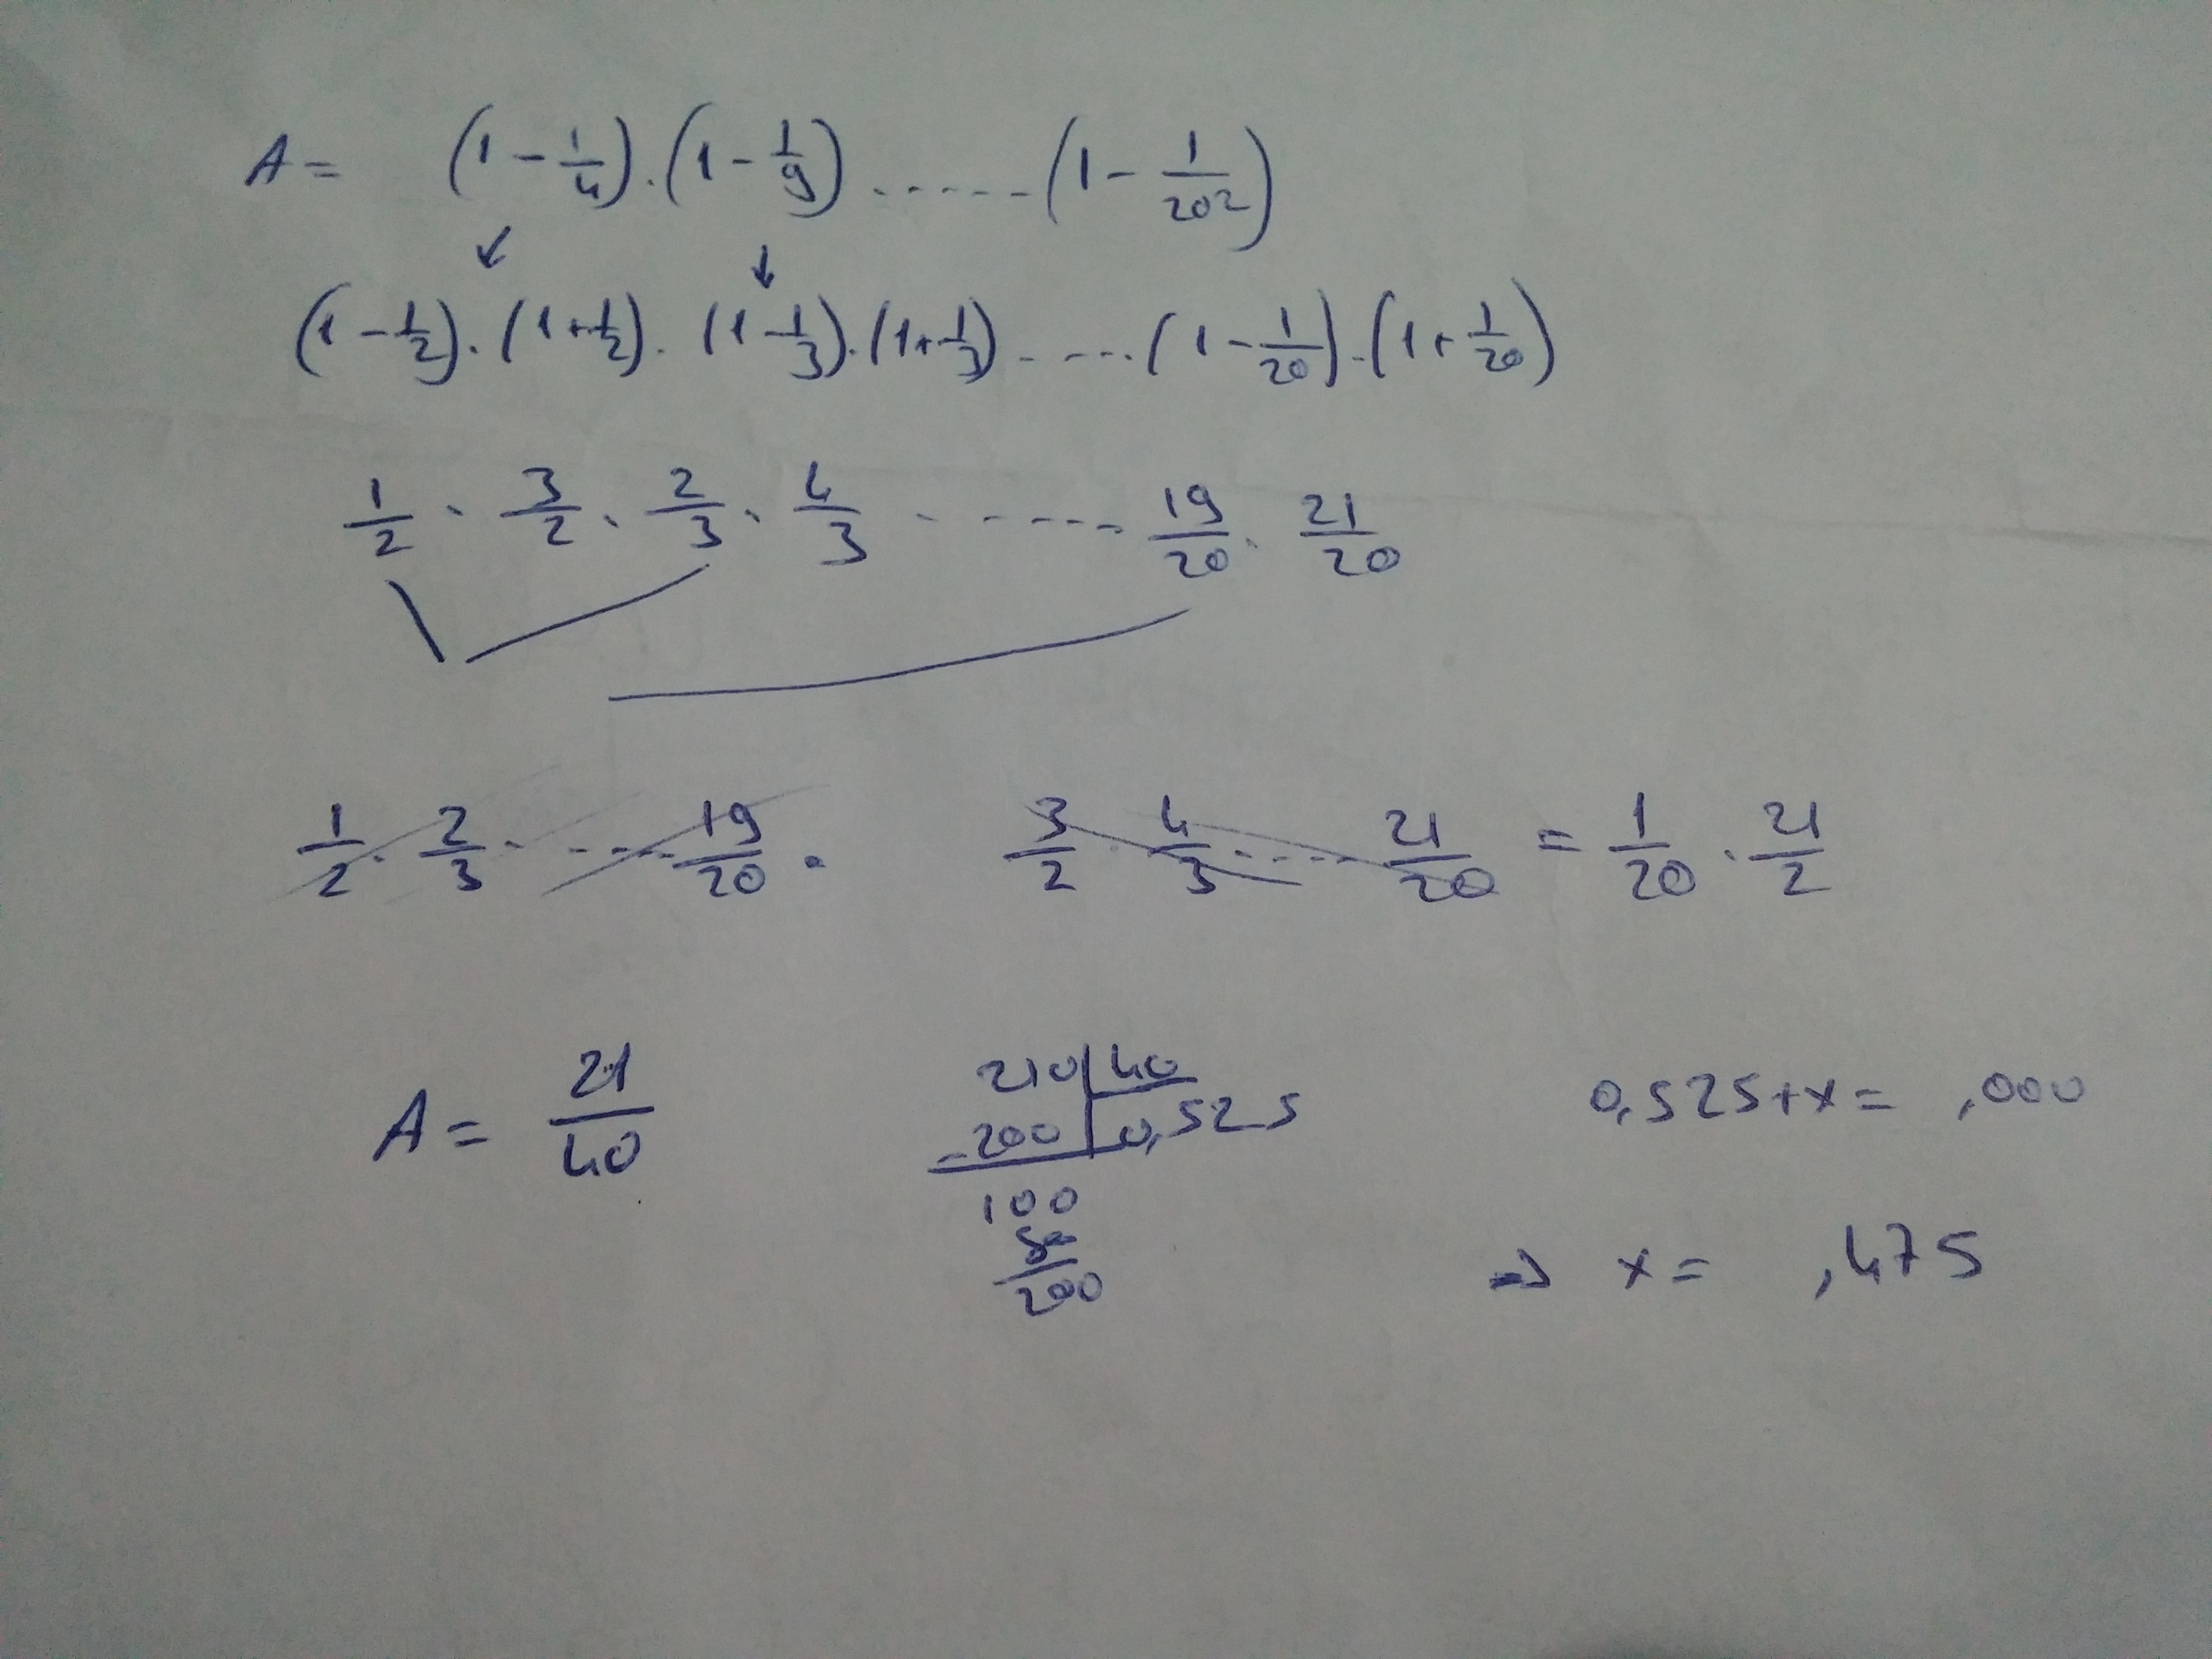 A = (1 - 1/4) . (1 - 1/9) ...... (1 - 1/20²)
(1 - 1/2) . (1 + 1/2) . (1 - 1/3) . (1 + 1/3) ..... (1 - 1/20) . (1 + 1/20)
1/2 . 3/2 . 2/3 . 4/3 ...... 19/20 . 21/20
1/2 . 2/3 ..... 19/20 . 3/2 . 4/3 ..... 21/20 = 1/20 . 21/2
A = 21/40
210 | 40
-200 | 0,525
100
80
200
0,525 + x = ,000
⇒ x = ,475